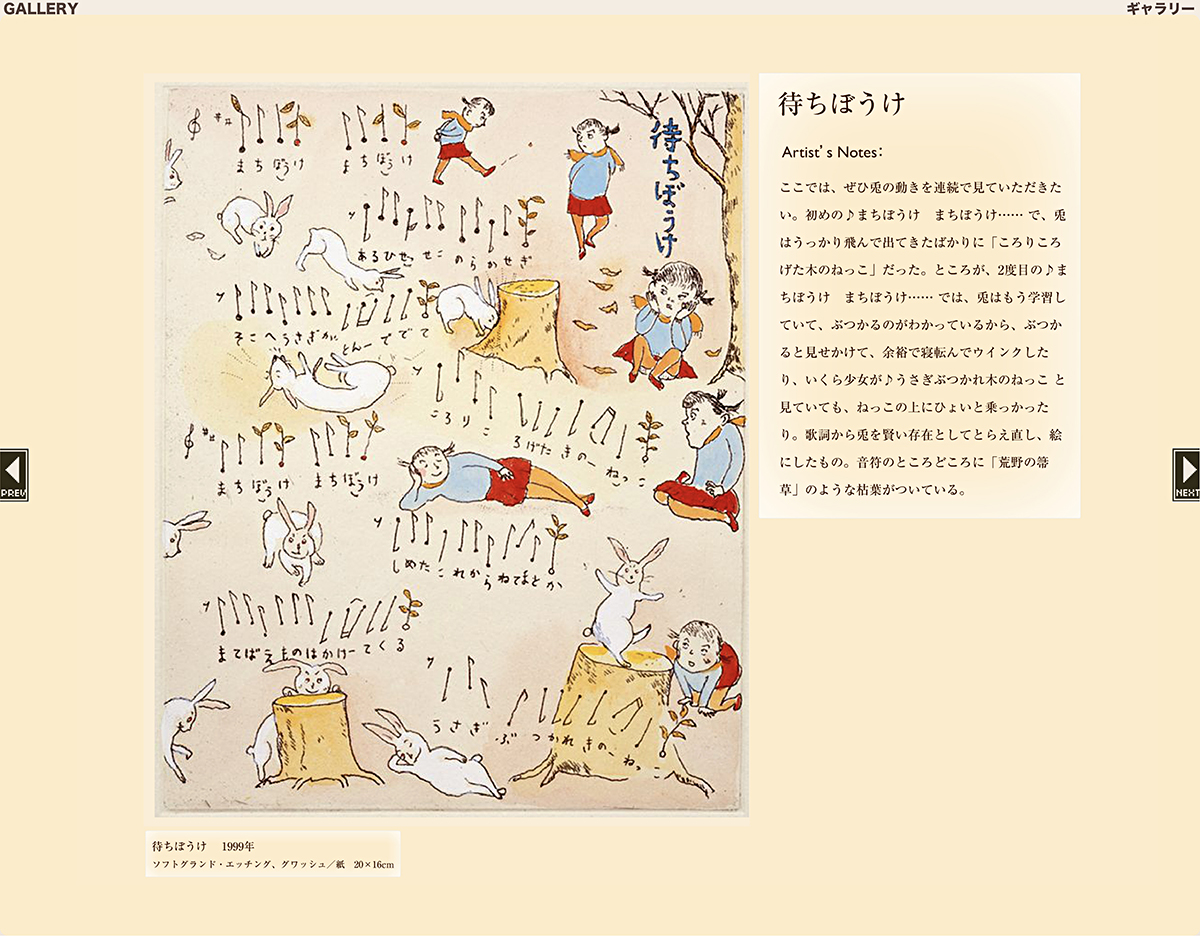 GALLERY
ギャラリー
待ちぼうけ
まちぼうけ
まちぼうけ
あるひせっせこ のらかせぎ
そこへうさぎが とんーででて
ころりころげたきのーねっこ
まちぼうけ
まちぼうけ
しめたこれからねてまとか
まてばえものはかけーてくる
うさぎぶつかれきのーねっこ
待ちぼうけ
Artist's Notes:
ここでは、ぜひ兎の動きを連続で見ていただきた
い。初めの♪まちぼうけ　まちぼうけ…… で、兎
はうっかり飛んで出てきたばかりに「ころりころ
げた木のねっこ」だった。ところが、2度目の♪ま
ちぼうけ　まちぼうけ…… では、兎はもう学習し
ていて、ぶつかるのがわかっているから、ぶつか
ると見せかけて、余裕で寝転んでウインクした
り、いくら少女が♪うさぎぶつかれ木のねっこ と
見ていても、ねっこの上にひょいと乗っかった
り。歌詞から兎を賢い存在としてとらえ直し、絵
にしたもの。音符のところどころに「荒野の箒
草」のような枯葉がついている。
PREV
NEXT
待ちぼうけ　1999年
ソフトグランド・エッチング、グワッシュ／紙　20×16cm